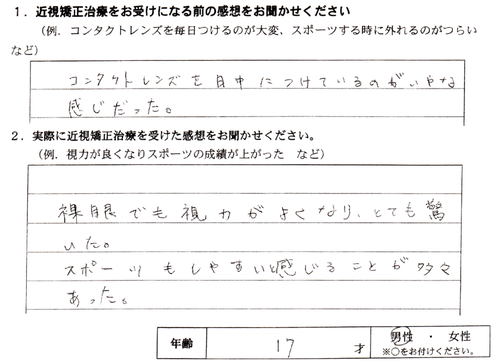 1．近視矯正治療をお受けになる前の感想をお聞かせください
（例．コンタクトレンズを毎日つけるのが大変、スポーツする時に外れるのがつらい
など）
コンタクトレンズを目中につけているのがいやな
感じだった。
2．実際に近視矯正治療を受けた感想をお聞かせください。
（例．視力が良くなりスポーツの成績が上がった　など）
裸眼でも視力がよくなり、とても驚
いた。
スポーツもしやすいと感じることが多々
あった。
年齢　17　才　男性　・　女性
※○をお付けください。